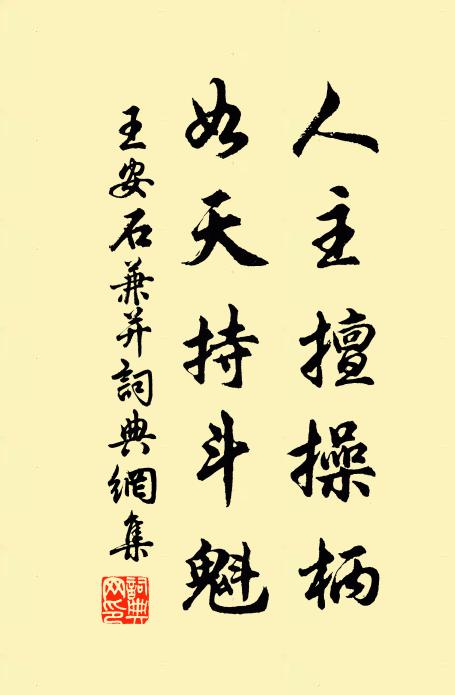 人主擅操柄
如天持斗魁
王安石兼并詞典網集
詞典网印